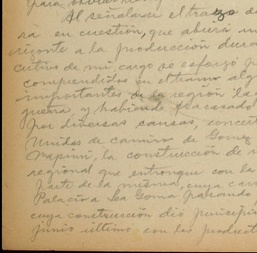 Al señalarse el trazo de
ra en cuestión, que abrirá un
rizonte a la producción dura
cutivo de mi cargo se esforzó p
comprendidos en el tramo alg
importantes de la región la
guera y habiendo fracasado
por diversas causas, concert
Unidos de camino de Gomez
Mapimí, la construcción de
regional que entronque con la
parte de la misma, cuya car
Palacio a La Goma pasando
cuya construcción dió principio
junio último con los product